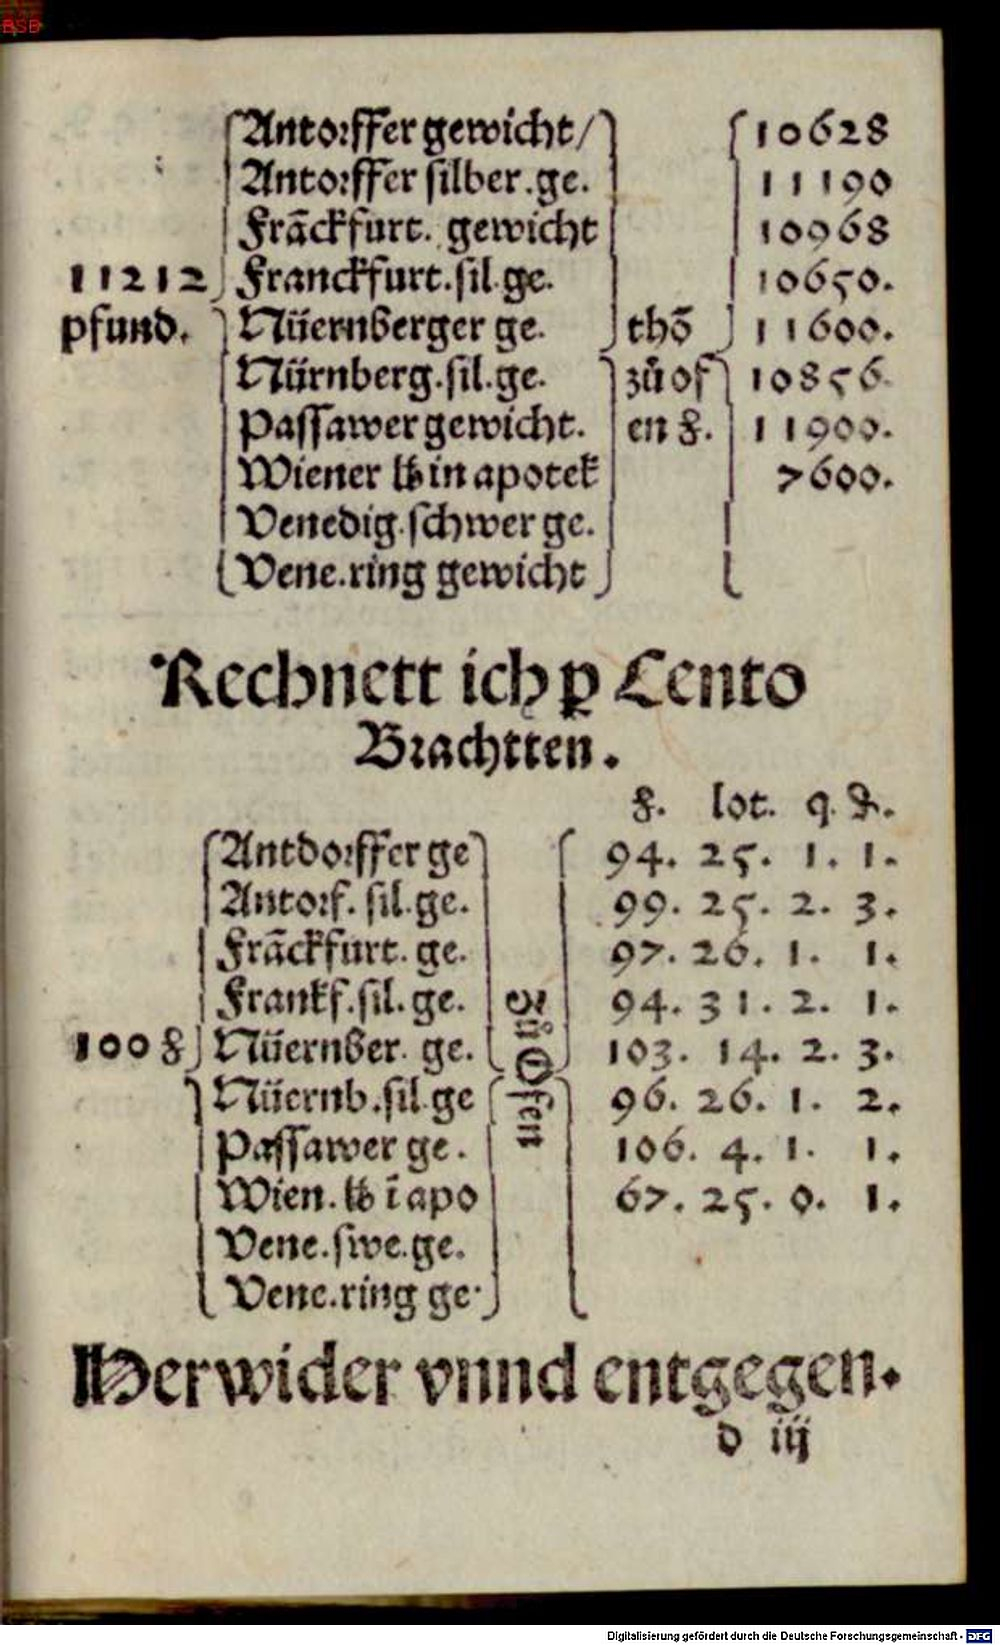 BSB
Antorffer gewicht/ 10628
Antorffer silber.ge. 11190
Frãckfurt. gewicht 10968
11212 Franckfurt.sil.ge. 10650.
pfund. Nüernberger ge. thõ 11600.
Nürnberg.sil.ge. zů of 10856.
Passawer gewicht. en 11900.
Wiener ℔ in apotek 7600.
Venedig.schwer ge.
Vene.ring gewicht
Rechnett ich ꝑ Cento
Brachtten.
lot. q. ₰.
Antdorffer ge 94. 25. 1. 1.
Antorf. sil.ge. 99. 25. 2. 3.
Frãckfurt. ge. 97. 26. 1. 1.
Frankf.sil. ge. 94. 31. 2. 1.
100 Nüernber. ge. Zů Ofen 103. 14. 2. 3.
Nüernb.sil.ge 96. 26. 1. 2.
Passawer ge. 106. 4. 1. 1.
Wien.℔ ĩ apo 67. 25. 0. 1.
Vene.swe.ge.
Vene.ring ge.
Herwider vnnd entgegen.
d iij
Digitalisierung gefördert durch die Deutsche Forschungsgemeinschaft - DFG